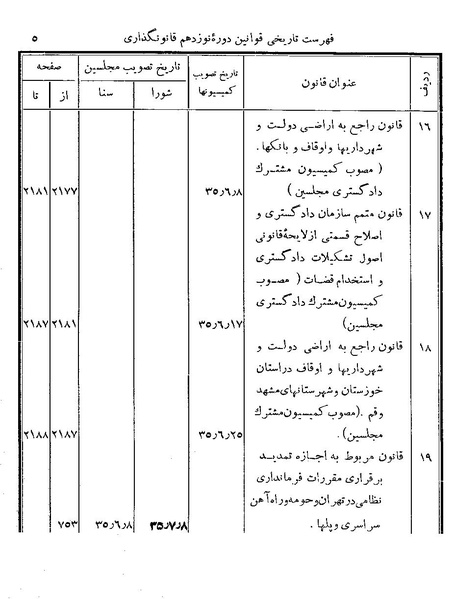 فهرست تاریخی قوانین دورهٔ نوزدهم قانونگذاری ۵
ردیف عنوان قانون تاریخ تصویب کمیسیونها تاریخ تصویب مجلسین صفحه
شورا سنا از تا
۱۶ قانون راجع به اراضی دولت و
شهرداریها و اوقاف و بانکها.
( مصوب کمیسیون مشترک
دادگستری مجلسین ) ۳۵٫۶٫۸ ۲۱۷۷ ۲۱۸۱
۱۷ قانون متمم سازمان دادگستری و
اصلاح قسمتی از لایحهٔ قانونی
اصول تشکیلات دادگستری
و استخدام قضات ( مصوب
کمیسیون مشترک دادگستری
مجلسین) ۳۵٫۶٫۱۷ ۲۱۸۱ ۲۱۸۷
۱۸ قانون راجع به اراضی دولت و
شهرداریها و اوقاف در استان
خوزستان و شهرستانهای مشهد
و قم .(مصوب کمیسیون مشترک
مجلسین) . ۳۵٫۶٫۲۵ ۲۱۸۷ ۲۱۸۸
۱۹ قانون مربوط به اجازه تمدید
برقراری مقررات فرمانداری
نظامی در تهران و حومه و راه آهن
سراسری و پلها . ۳۵٫۷٫۸ ۳۵٫۶٫۸ ۷۵۳